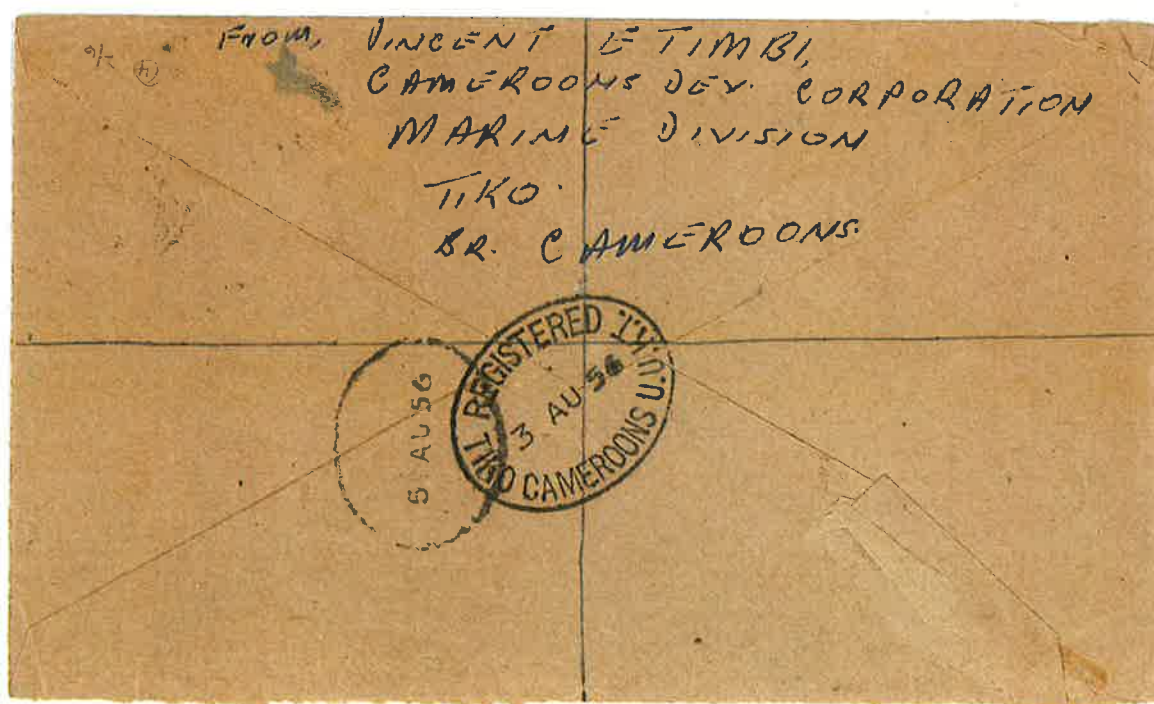 From, VINCENT ETIMBI,
CAMEROONS DEV. CORPORATION
MARINE DIVISION
TIKO.
BR. CAMEROONS.
REGISTERED U.U.K.T.
3 AU 56
TIKO CAMEROONS
5 AU 56